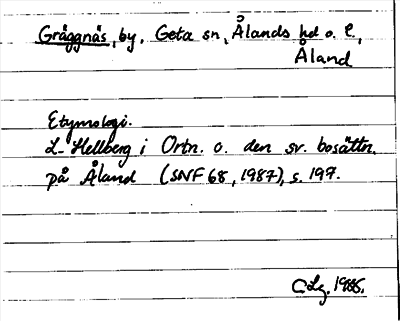 Gråggnäs, by, Geta sn, Ålands hd o. l.,
Åland
Etymologi.
L. Hellberg i Ortn. o. den sv. bosättn.
på Åland (SNF 68, 1987), s. 197.
CLg. 1988.